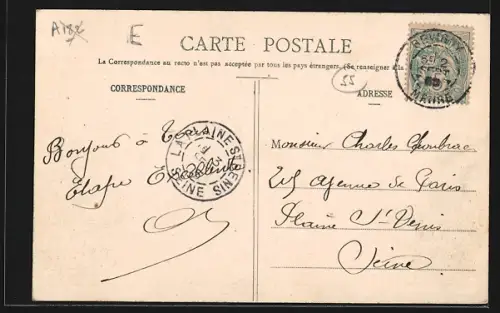 A182
E
CARTE POSTALE
La Correspondance au recto n'est pas acceptée par tous les pays étrangers. (Se renseigner à la
52
CORRESPONDANCE
ADRESSE
Bonjour à Tous
Etape Excellente
LA PLAINE-ST-DENIS
SEINE
MARNE
Monsieur Charles
215 avenue de Paris
Plaine St Denis
Seine